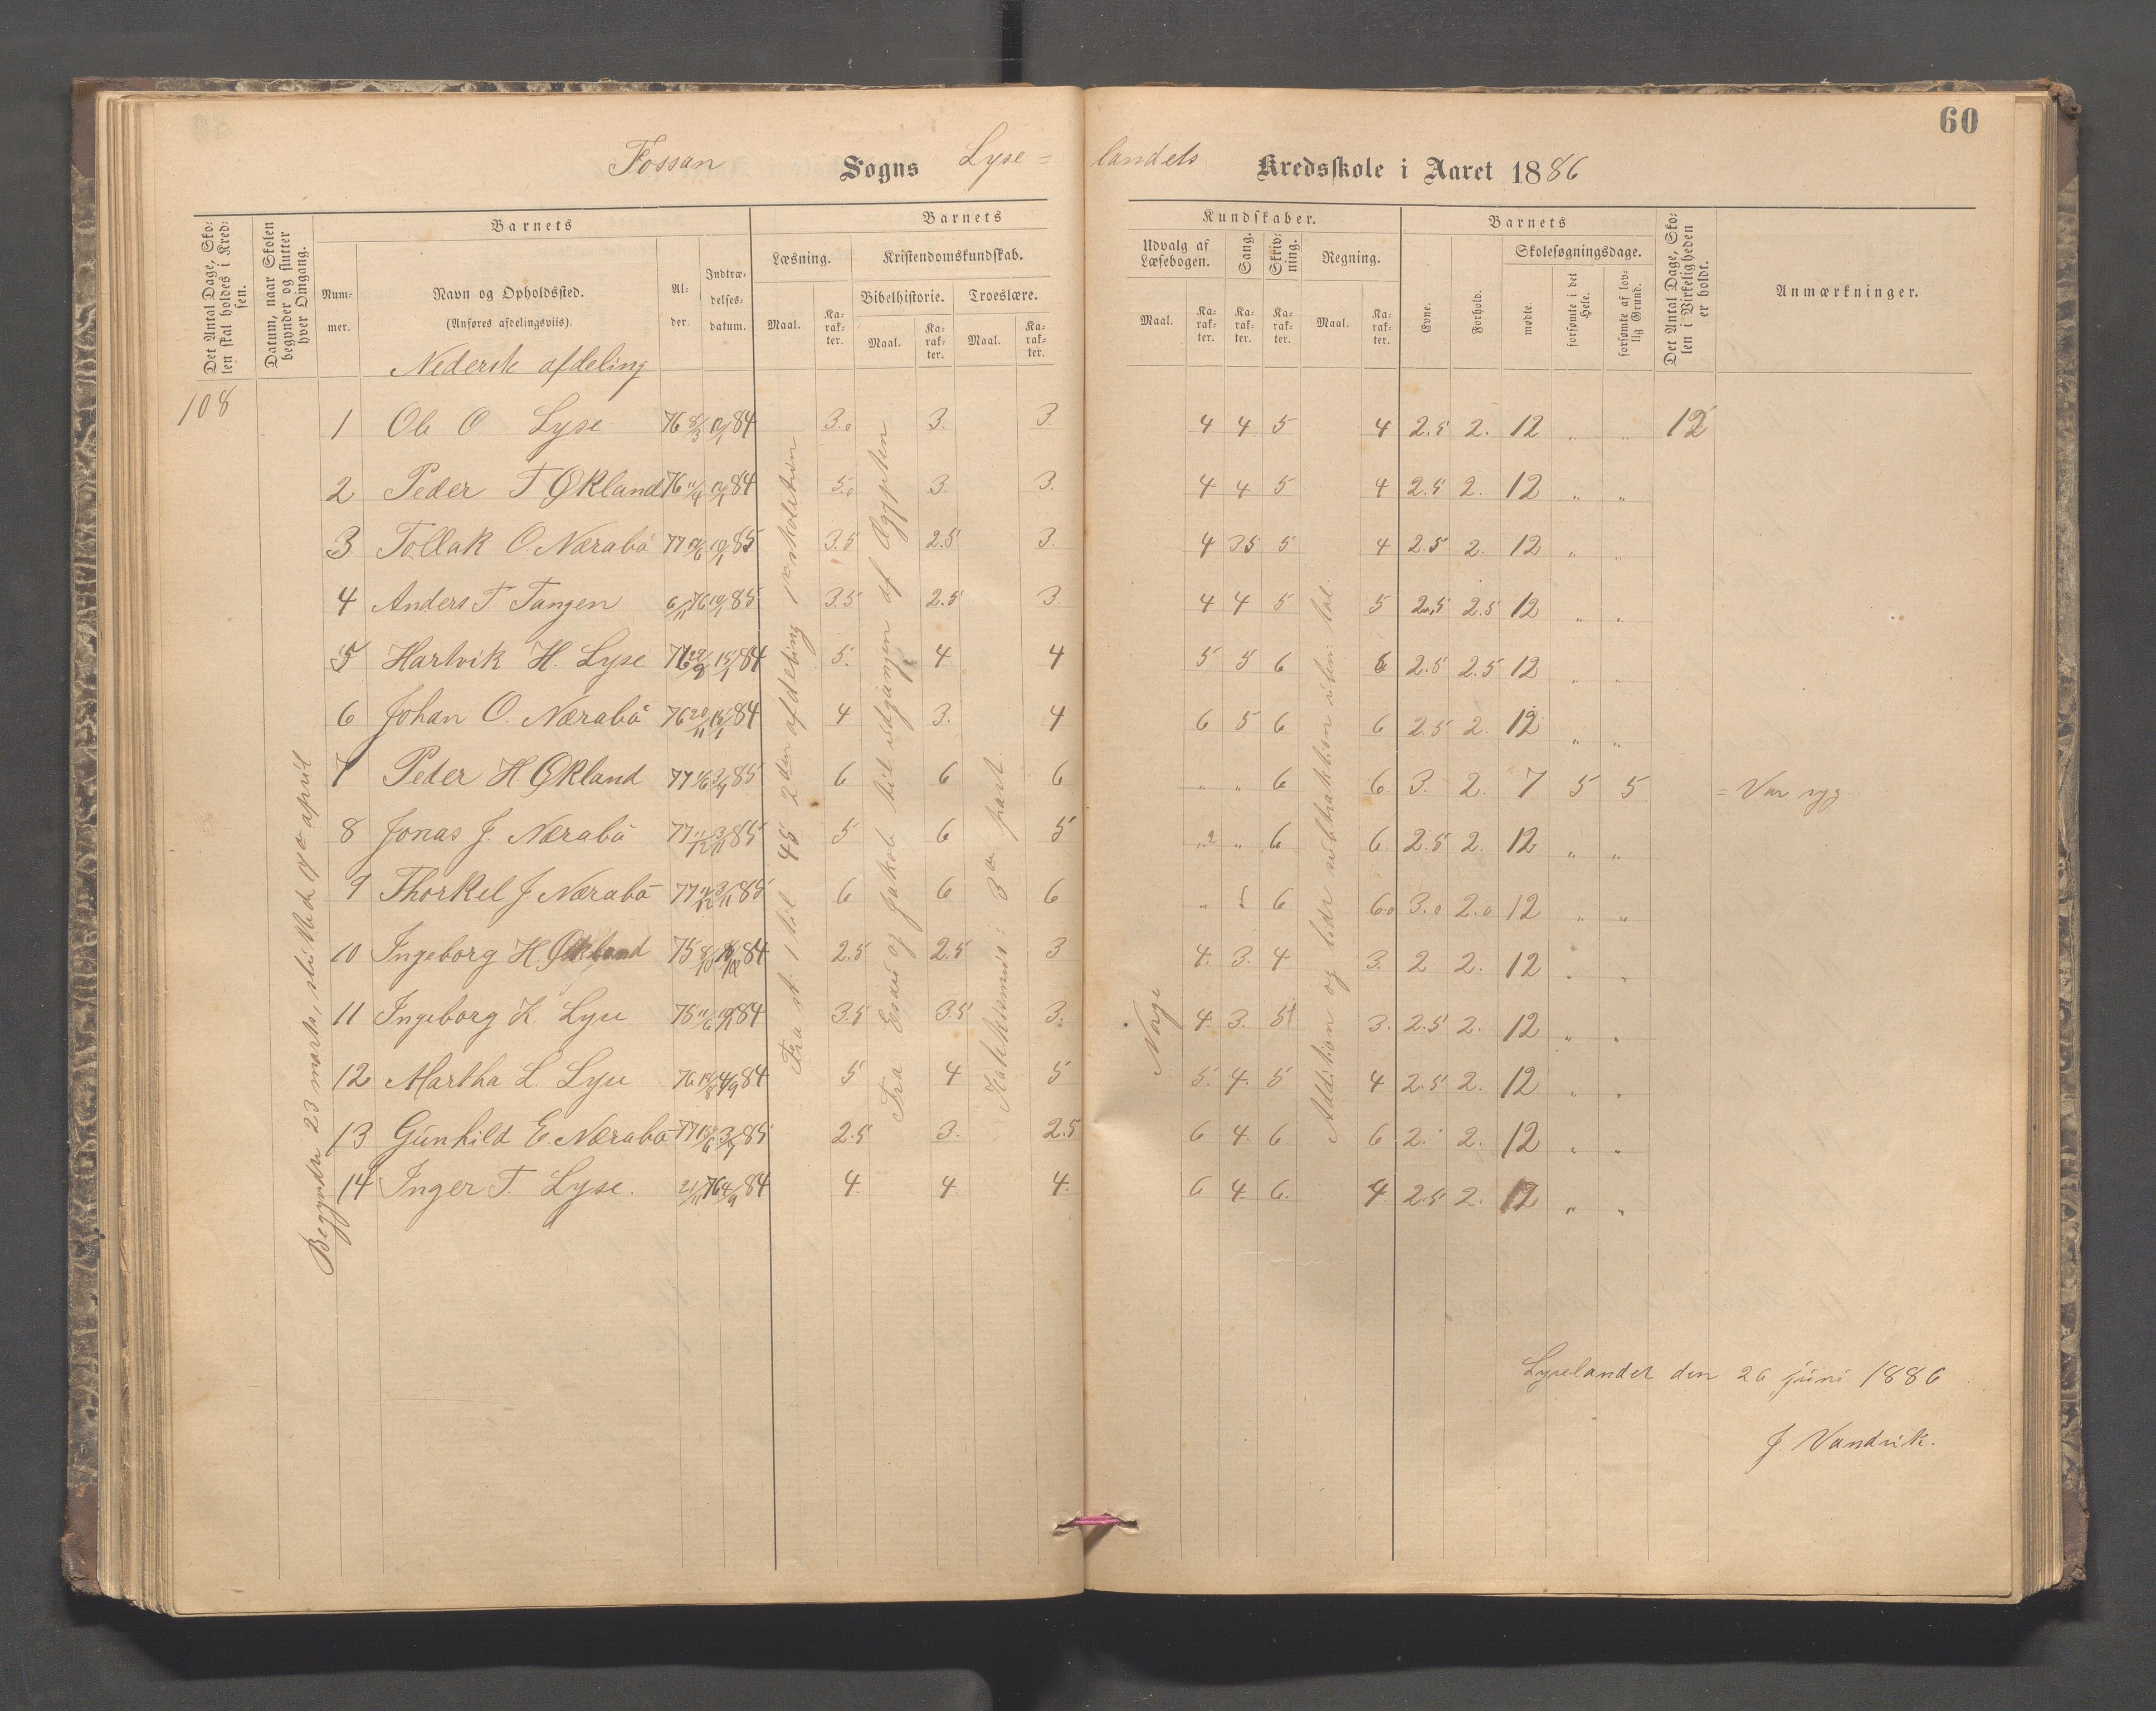 60
Fossan Sogns Lyse = landets Kredsskole i Aaret 1886
Det Antal Dage, Sko- len skal holdes i Kred- sen.
Datum, naar Skolen begynder og slutter hver Omgang.
Barnets
Num- mer.
Navn og Opholdssted. (Anføres afdelingsviis).
Al- der.
Indtræ- delses- datum.
Barnets
Læsning.
Kristendomskundskab.
Bibelhistorie.
Troeslære.
Maal. Ka- rak- ter. Maal. Ka- rak- ter. Maal. Ka- rak- ter.
Kundskaber.
Udvalg af Læsebogen. Sang. Skriv- ning. Regning.
Maal. Ka- rak- ter. Ka- rak- ter. Ka- rak- ter. Maal. Ka- rak- ter.
Barnets
Evne. Forhold.
Skolesøgningsdage.
mødte. forsømte i det Hele. forsømte af lov- lig Grund.
Det Antal Dage, Sko- len i Virkeligheden er holdt.
Anmærkninger.
Nederste afdeling
108
1 Ole O. Lyse 76 84 3.0 3. 3. 4 4 5 4 2.5 2. 12 „ „ 12
2 Peder T Økland 76 11/4 84 5.0 3. 3. 4 4 5 4 2.5 2. 12 „ „
3 Tollak O. Nærabö 77 85 3.5 2.5 3. 4 3.5 5 4 2.5 2. 12 „ „
4 Anders T. Tangen 6/11 76 85 3.5 2.5 3. 4 4 5 5 2.5 2.5 12 „ „
5 Hartvik H. Lyse 76 15/1 84 5. 4 4 5 5 6 6 2.5 2.5 12 „ „
6 Johan O. Nærabö 76 20/11 15/1 84 4 3. 4 6 5 6 6 2.5 2. 12 „ „
7 Peder H. Økland 77 85 6 6 6 „ „ 6 6 3. 2. 7 5 5 = Var syg
8 Jonas J. Nærabö 77 11/12 3/11 85 5 6 5 „ „ 6 6 2.5 2. 12 „ „
9 Thorkel J Nærabö 77 11/12 3/11 85 6 6 6 „ 6 6.0 3.0 2.0 12 „ „
10 Ingeborg H. Økland 75 8/10 84 2.5 2.5 3 4. 3. 4 3. 2 2. 12 „ „
11 Ingeborg K. Lyse 75 11/6 84 3.5 3.5 3. 4. 3. 5 3. 2.5 2. 12 „ „
12 Martha L. Lyse 76 4/9 84 5 4 5 5. 4. 5 4 2.5 2. 12 „ „
13 Gunhild E. Nærabö 77 85 2.5 3. 2.5 6 4. 6 6 2. 2. 12 „ „
14 Inger T. Lyse. 21/11 76 4/9 84 4. 4 4. 6 4. 6. 4 2.5 2. 12 „ „
Begyndte 23 marts, sluttede april
Fra st. 1 til 45 2den afdeling
Fra Esau og Jakob til udgangen af Ægypten
Katekismus: 3die part
Norge
Addition og lidt subtraktion uben. tal.
Lyselandet den 26 juni 1886
J. Vandvik.